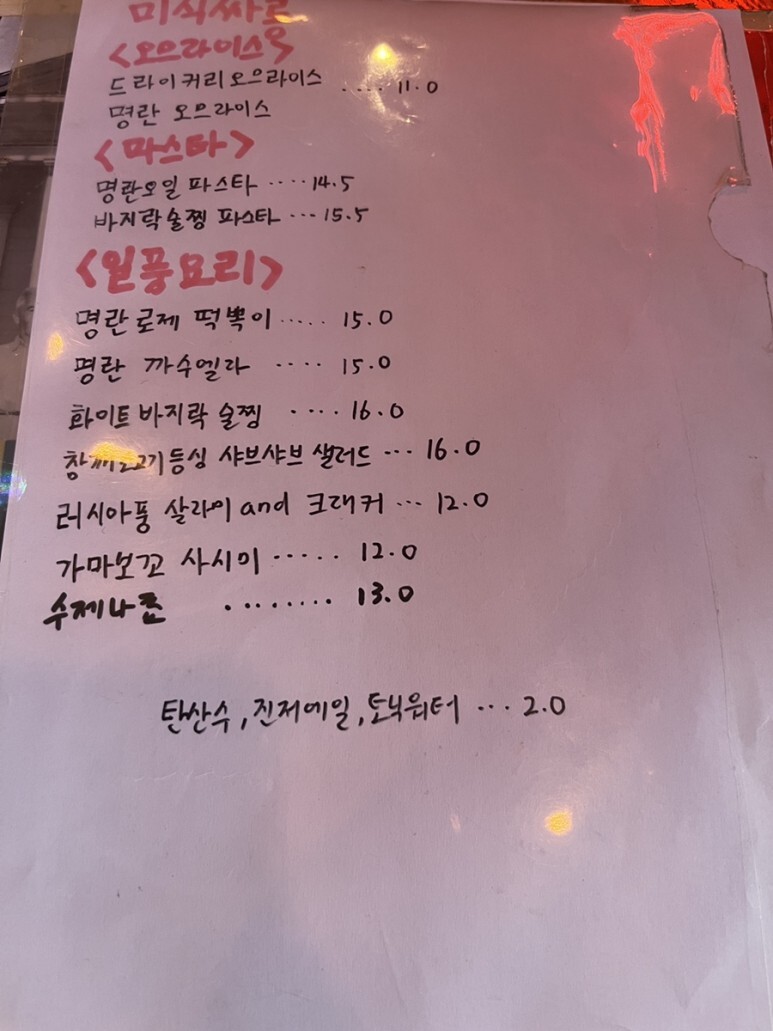 미식싸롱
<오므라이스>
드라이커리오므라이스 .... 11.0
명란 오므라이스
<파스타>
명란오일 파스타 .... 14.5
바지락술찜 파스타 ... 15.5
<일품요리>
명란로제 떡볶이 ..... 15.0
명란 까수엘라 .... 15.0
화이트바지락 술찜 .... 16.0
등심 샤브샤브 샐러드 ... 16.0
러시아풍 살라미 and 크래커 ... 12.0
가마보꼬 사시미 ..... 12.0
수제나쵸 ........ 13.0
탄산수, 진저에일, 토닉워터 ... 2.0